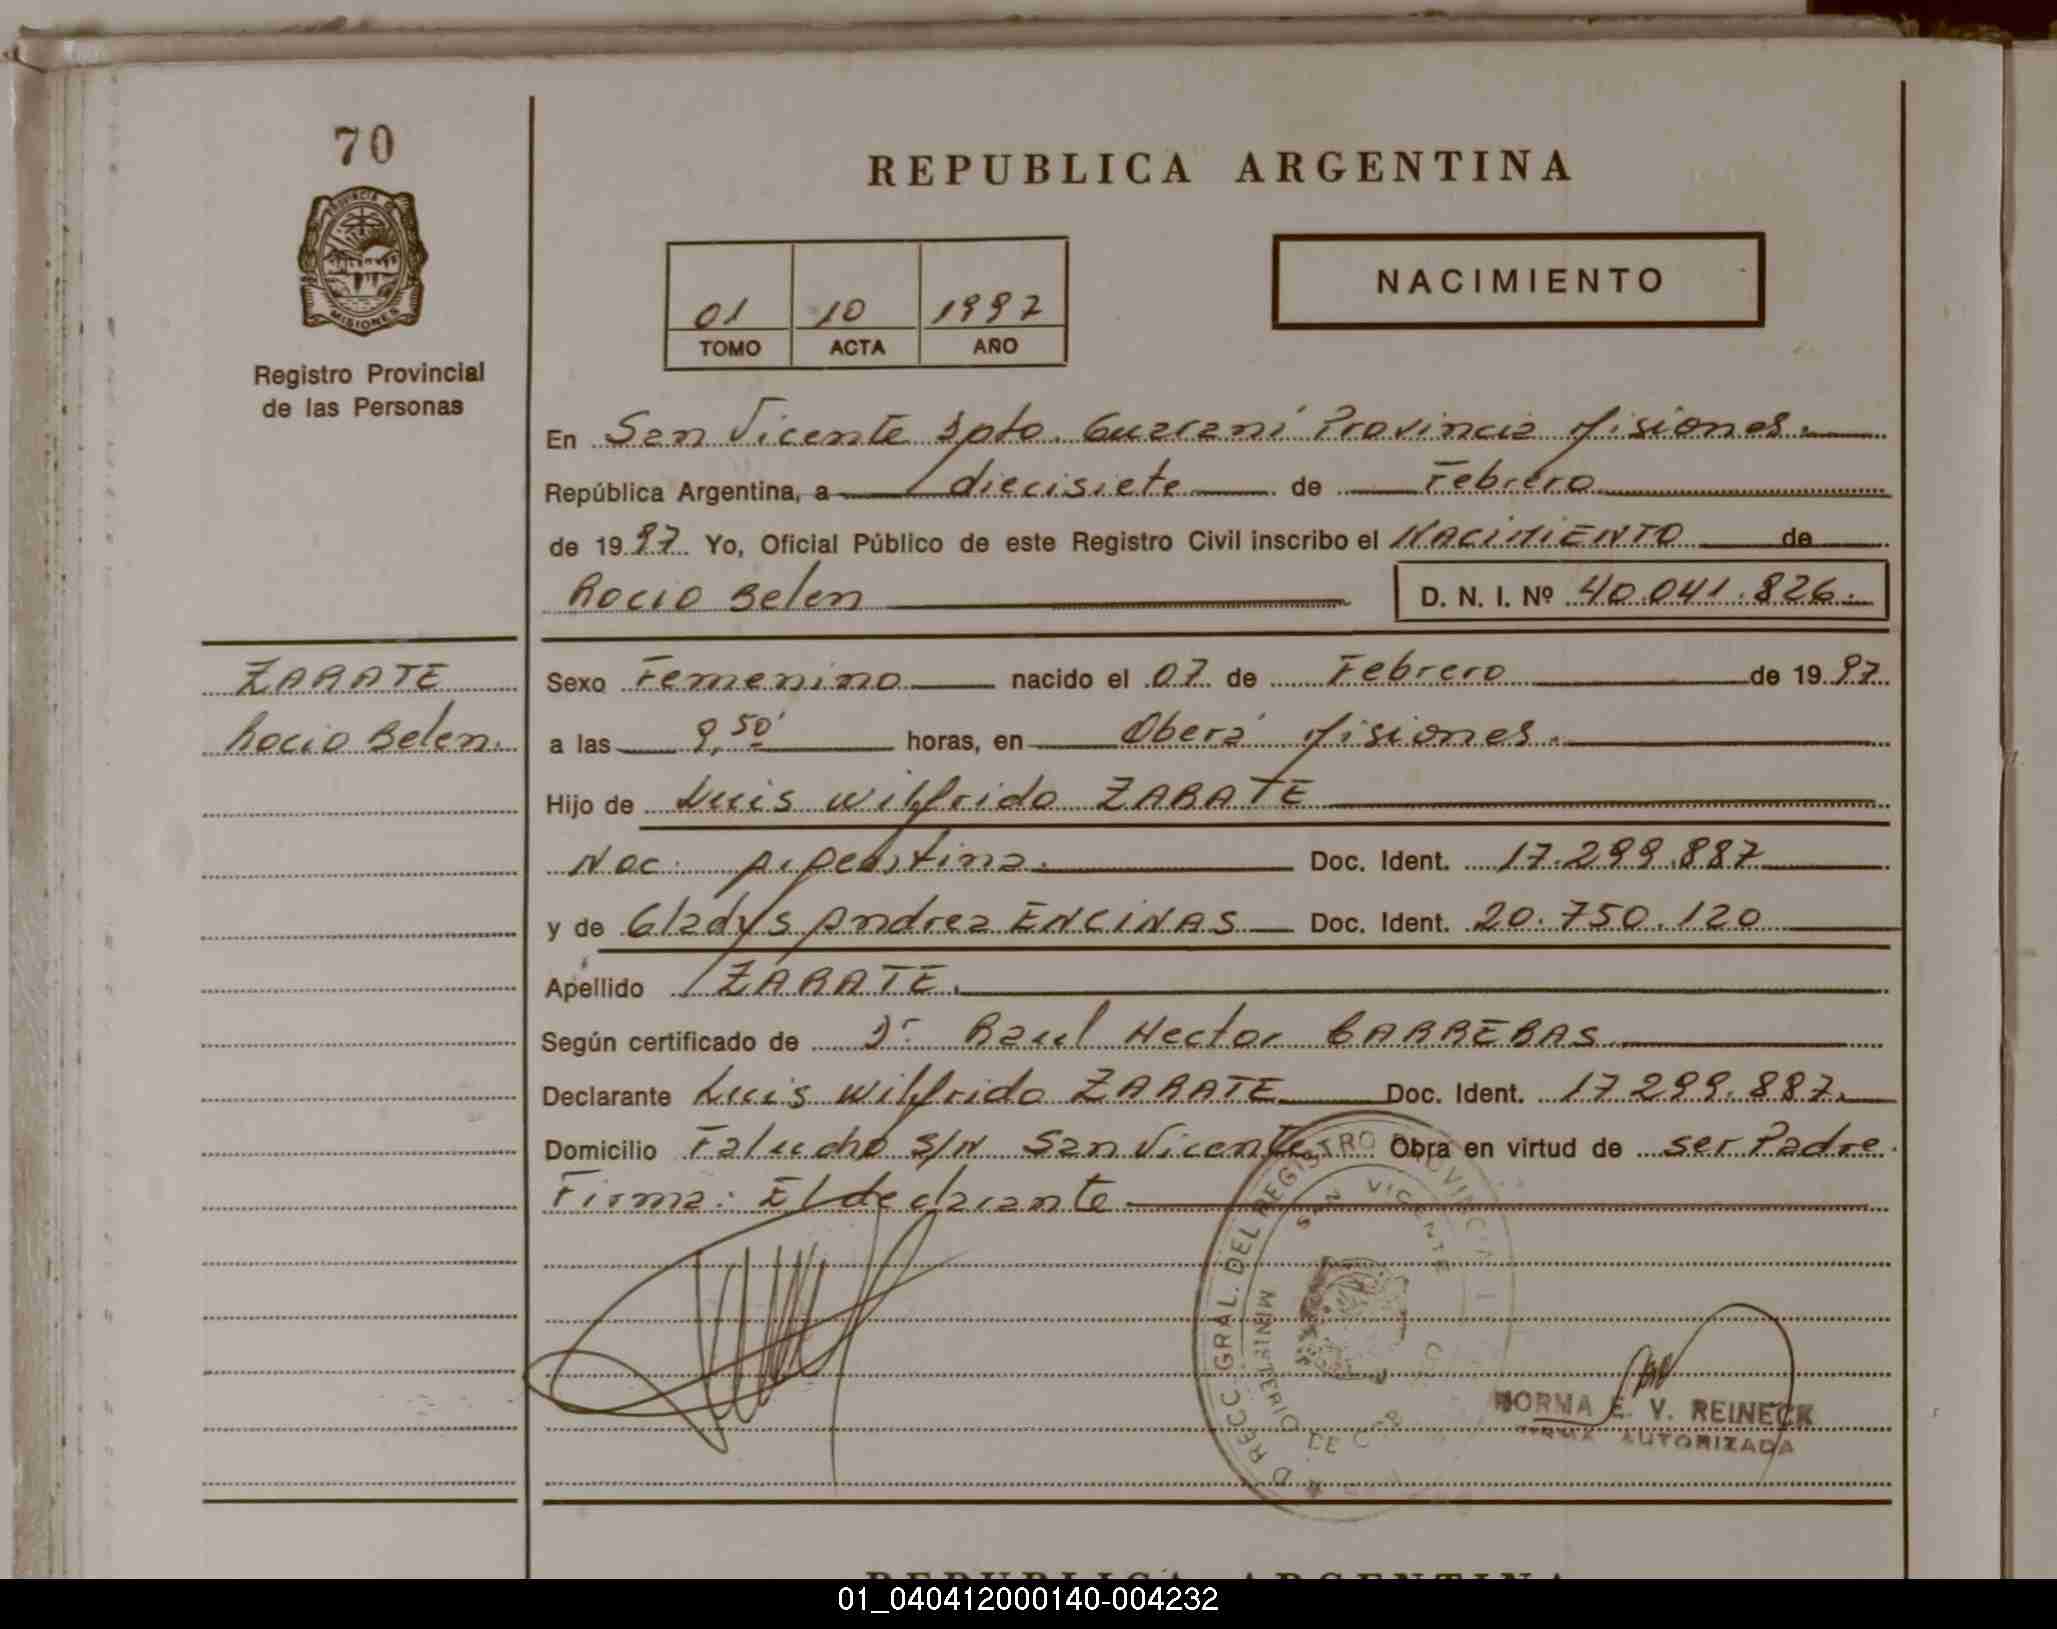 70
REPUBLICA ARGENTINA
PROVINCIA DE
MISIONES
Registro Provincial
de las Personas
01 10 1997
TOMO ACTA AÑO
NACIMIENTO
En San Vicente Dpto. Guaraní Provincia Misiones.
República Argentina, a diecisiete de Febrero
de 1997 Yo, Oficial Público de este Registro Civil inscribo el NACIMIENTO de
Rocio Belen D. N. I. Nº 40.041.826.
ZARATE
Rocio Belen.
Sexo Femenino nacido el 07 de Febrero de 1997
a las 9,50' horas, en Oberá Misiones.
Hijo de Luis Wilfrido ZARATE
Nac. Argentina. Doc. Ident. 17.299.887
y de Gladys Andrea ENCINAS Doc. Ident. 20.750.120
Apellido ZARATE.
Según certificado de Dr. Raul Hector CARRERAS
Declarante Luis Wilfrido ZARATE Doc. Ident. 17.299.887.
Domicilio Falucho S/N San Vicente Obra en virtud de ser Padre.
Firma: El declarante
GRAL. DEL REGISTRO PROVINCIAL
SAN VICENTE
MINISTERIO DE
NORMA E. V. REINECK
FIRMA AUTORIZADA
REPUBLICA ARGENTINA
01_040412000140-004232